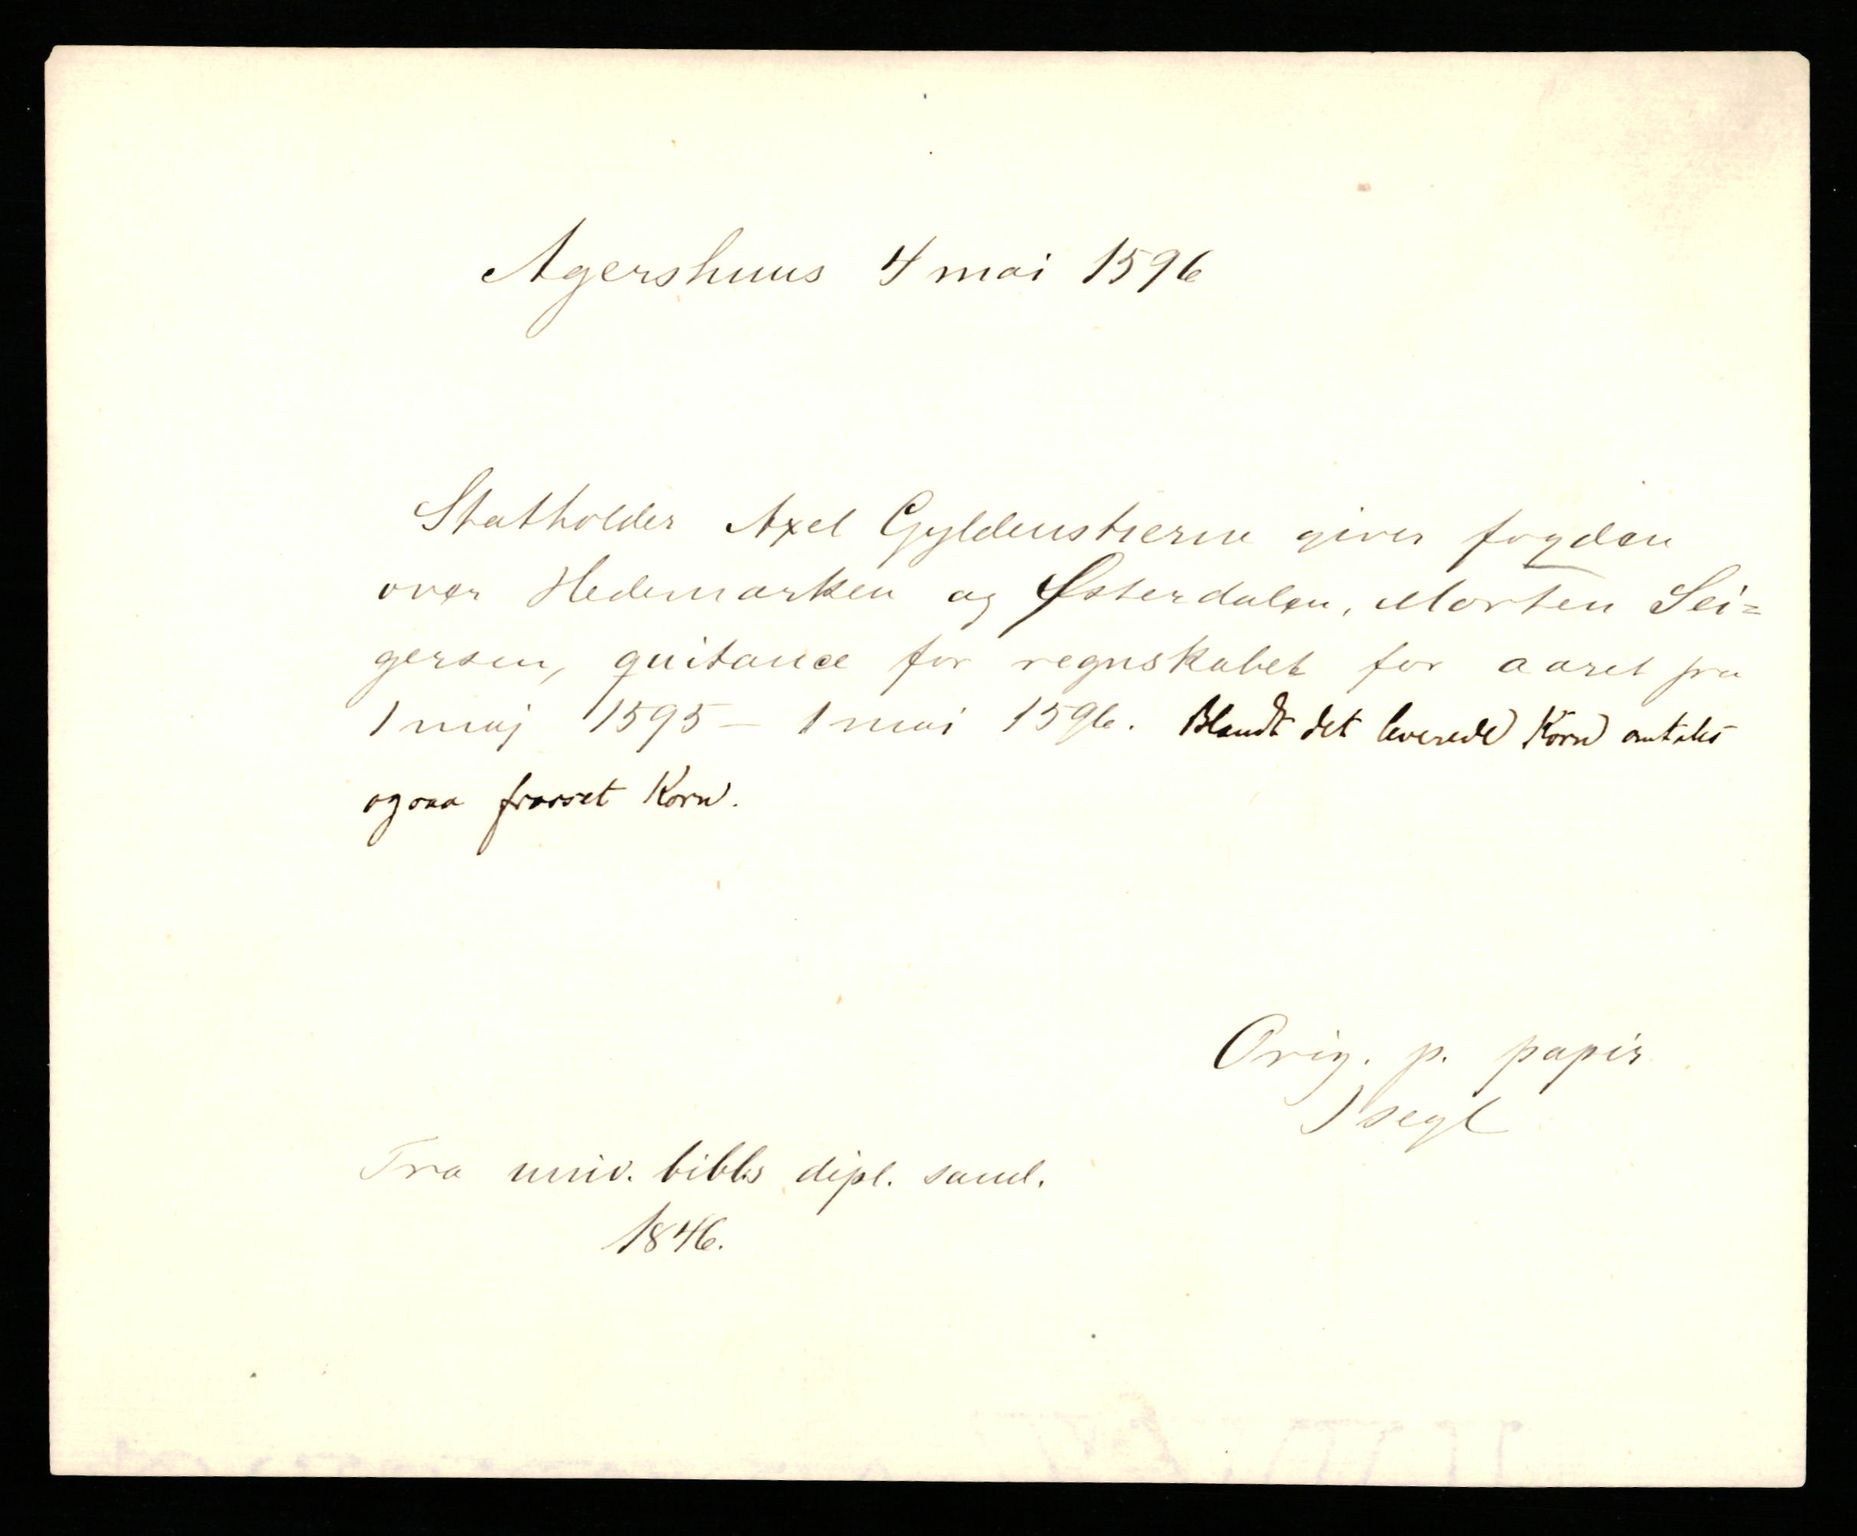 Agershuus 4 mai 1596
Statholder Axel Gyldenstierne giver fogden
over Hedemarken og Østerdalen, Morten Sei=
gersen, quitance for regnskabet for aaret fra
1 maj 1595 – 1 mai 1596. Blandt det leverede Korn omtales
ogsaa frosset Korn.
Orig. p. papir
1 segl
Fra univ. bibl.s dipl. saml.
1846.